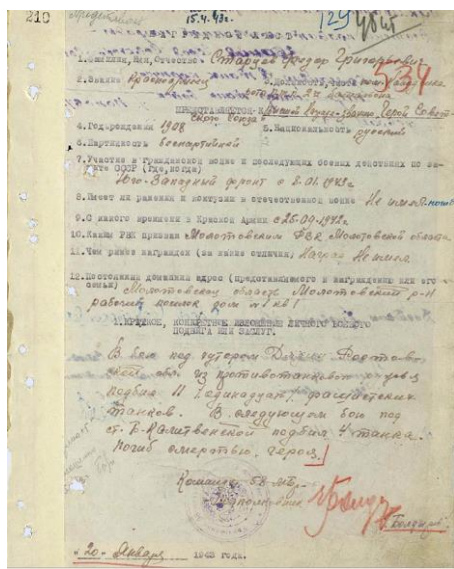 210
15.4.43г.
убит
534
1. Фамилия, Имя, Отчество Старцев Федор Григорьевич
2. Звание Красноармеец 3. Должность, часть
ПРЕДСТАВЛЯЕТСЯ К Герой Совет-
ского Союза
4. Год рождения 1908 5. Национальность русский
6. Партийность беспартийный
7. Участие в гражданской войне и последующих боевых действиях по за-
щите СССР (где, когда)
Юго-Западный фронт с 8.01.1943г.
8. Имеет ли ранения и контузии в отечественной войне Не имеет
9. С какого времени в Красной Армии с 25.09.1942г.
10. Каким РВК призван Молотовским РВК Молотовской области
11. Чем ранее награжден (за какие отличия) Наград Не имел
12. Постоянный домашний адрес (представляемого к награждению или его
семьи) Молотовская область Молотовский р-н
рабочий поселок дом кв 1
1. КРАТКОЕ, КОНКРЕТНОЕ ИЗЛОЖЕНИЕ ЛИЧНОГО БОЕВОГО
ПОДВИГА ИЛИ ЗАСЛУГ.
В бою под хутором Ростов-
ской обл. из противотанкового ружья
подбил 11 (одинадцать) фашистских
танков. В следующем бою под
ст. Б-Калитвенской подбил 4 танка.
Погиб смертью героя.
Командир 58
Подполковник
"20" Января 1943 года.